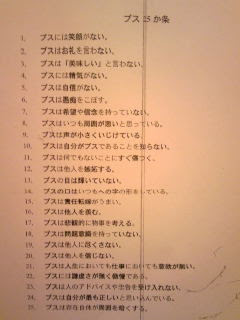 ブス25か条
1. ブスには笑顔がない。
2. ブスはお礼を言わない。
3. ブスは「美味しい」と言わない。
4. ブスには精気がない。
5. ブスは自信がない。
6. ブスは愚痴をこぼす。
7. ブスは希望や信念を持っていない。
8. ブスはいつも周囲が悪いと思っている。
9. ブスは声が小さくいじけている。
10. ブスは自分がブスであることを知らない。
11. ブスは何でもないことにすぐ傷つく。
12. ブスは他人を嫉妬する。
13. ブスの目は輝いていない。
14. ブスの口はいつもへの字の形をしている。
15. ブスは責任転嫁がうまい。
16. ブスは他人を羨む。
17. ブスは悲観的に物事を考える。
18. ブスは問題意識を持っていない。
19. ブスは他人に尽くさない。
20. ブスは他人を信じない。
21. ブスは人生においても仕事においても意欲が無い。
22. ブスには謙虚さが無く傲慢である。
23. ブスは人のアドバイスや忠告を受け入れない。
24. ブスは自分が最も正しいと思い込んでいる。
25. ブスは存在自体が周囲を暗くする。